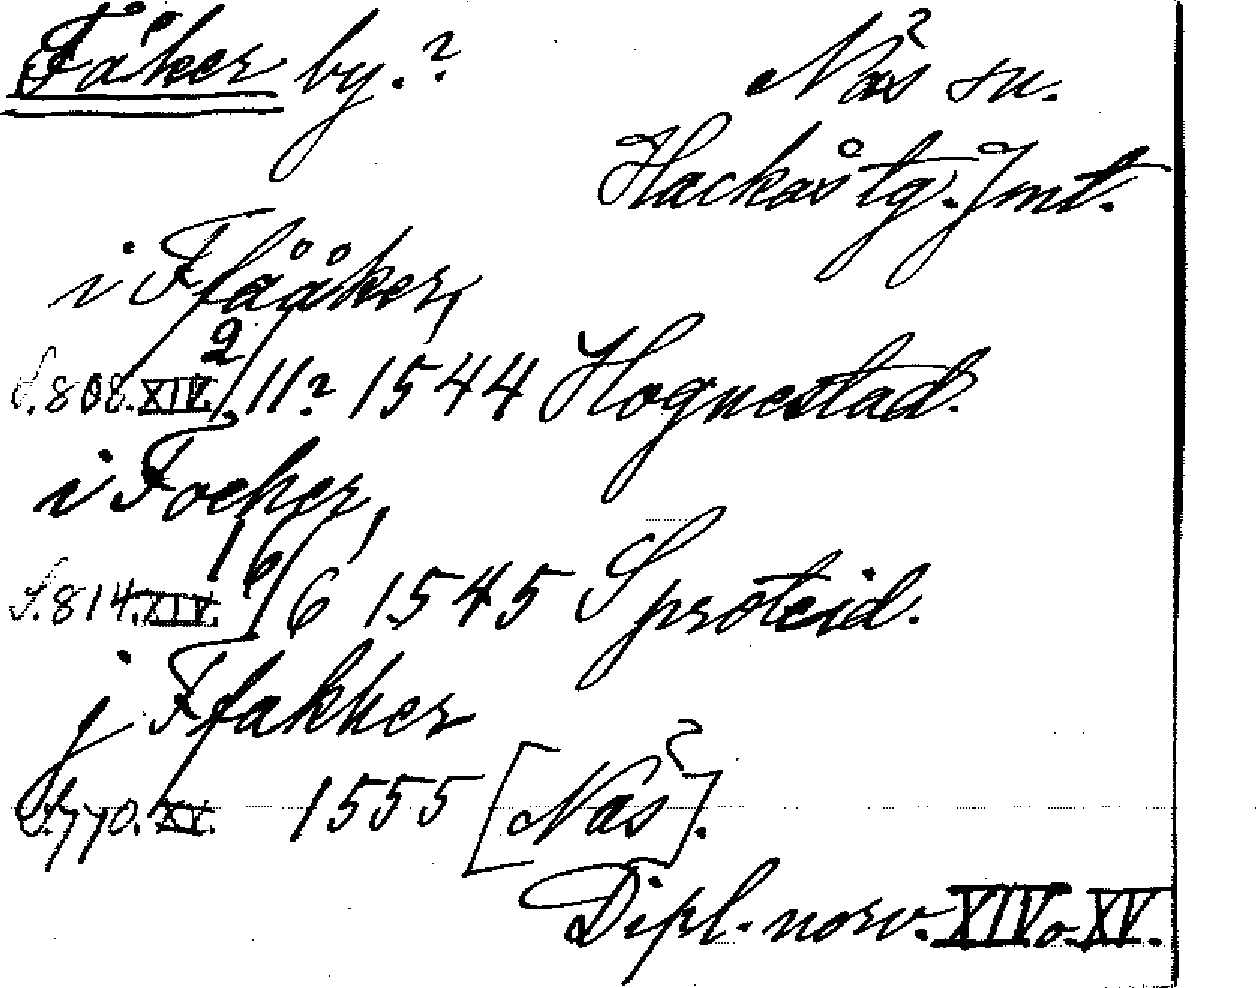 Fåker by.?
Näs sn.
Hackås tg. Jmt.
i Ffååker,
S. 808. XIV. 2/11? 1544 Hognestad.
i Focker,
S. 814. XIV. 16/6 1545 Sproteid.
j Ffakker
S. 770. XV. 1555 [Näs].
Dipl. norv. XIV o. XV.